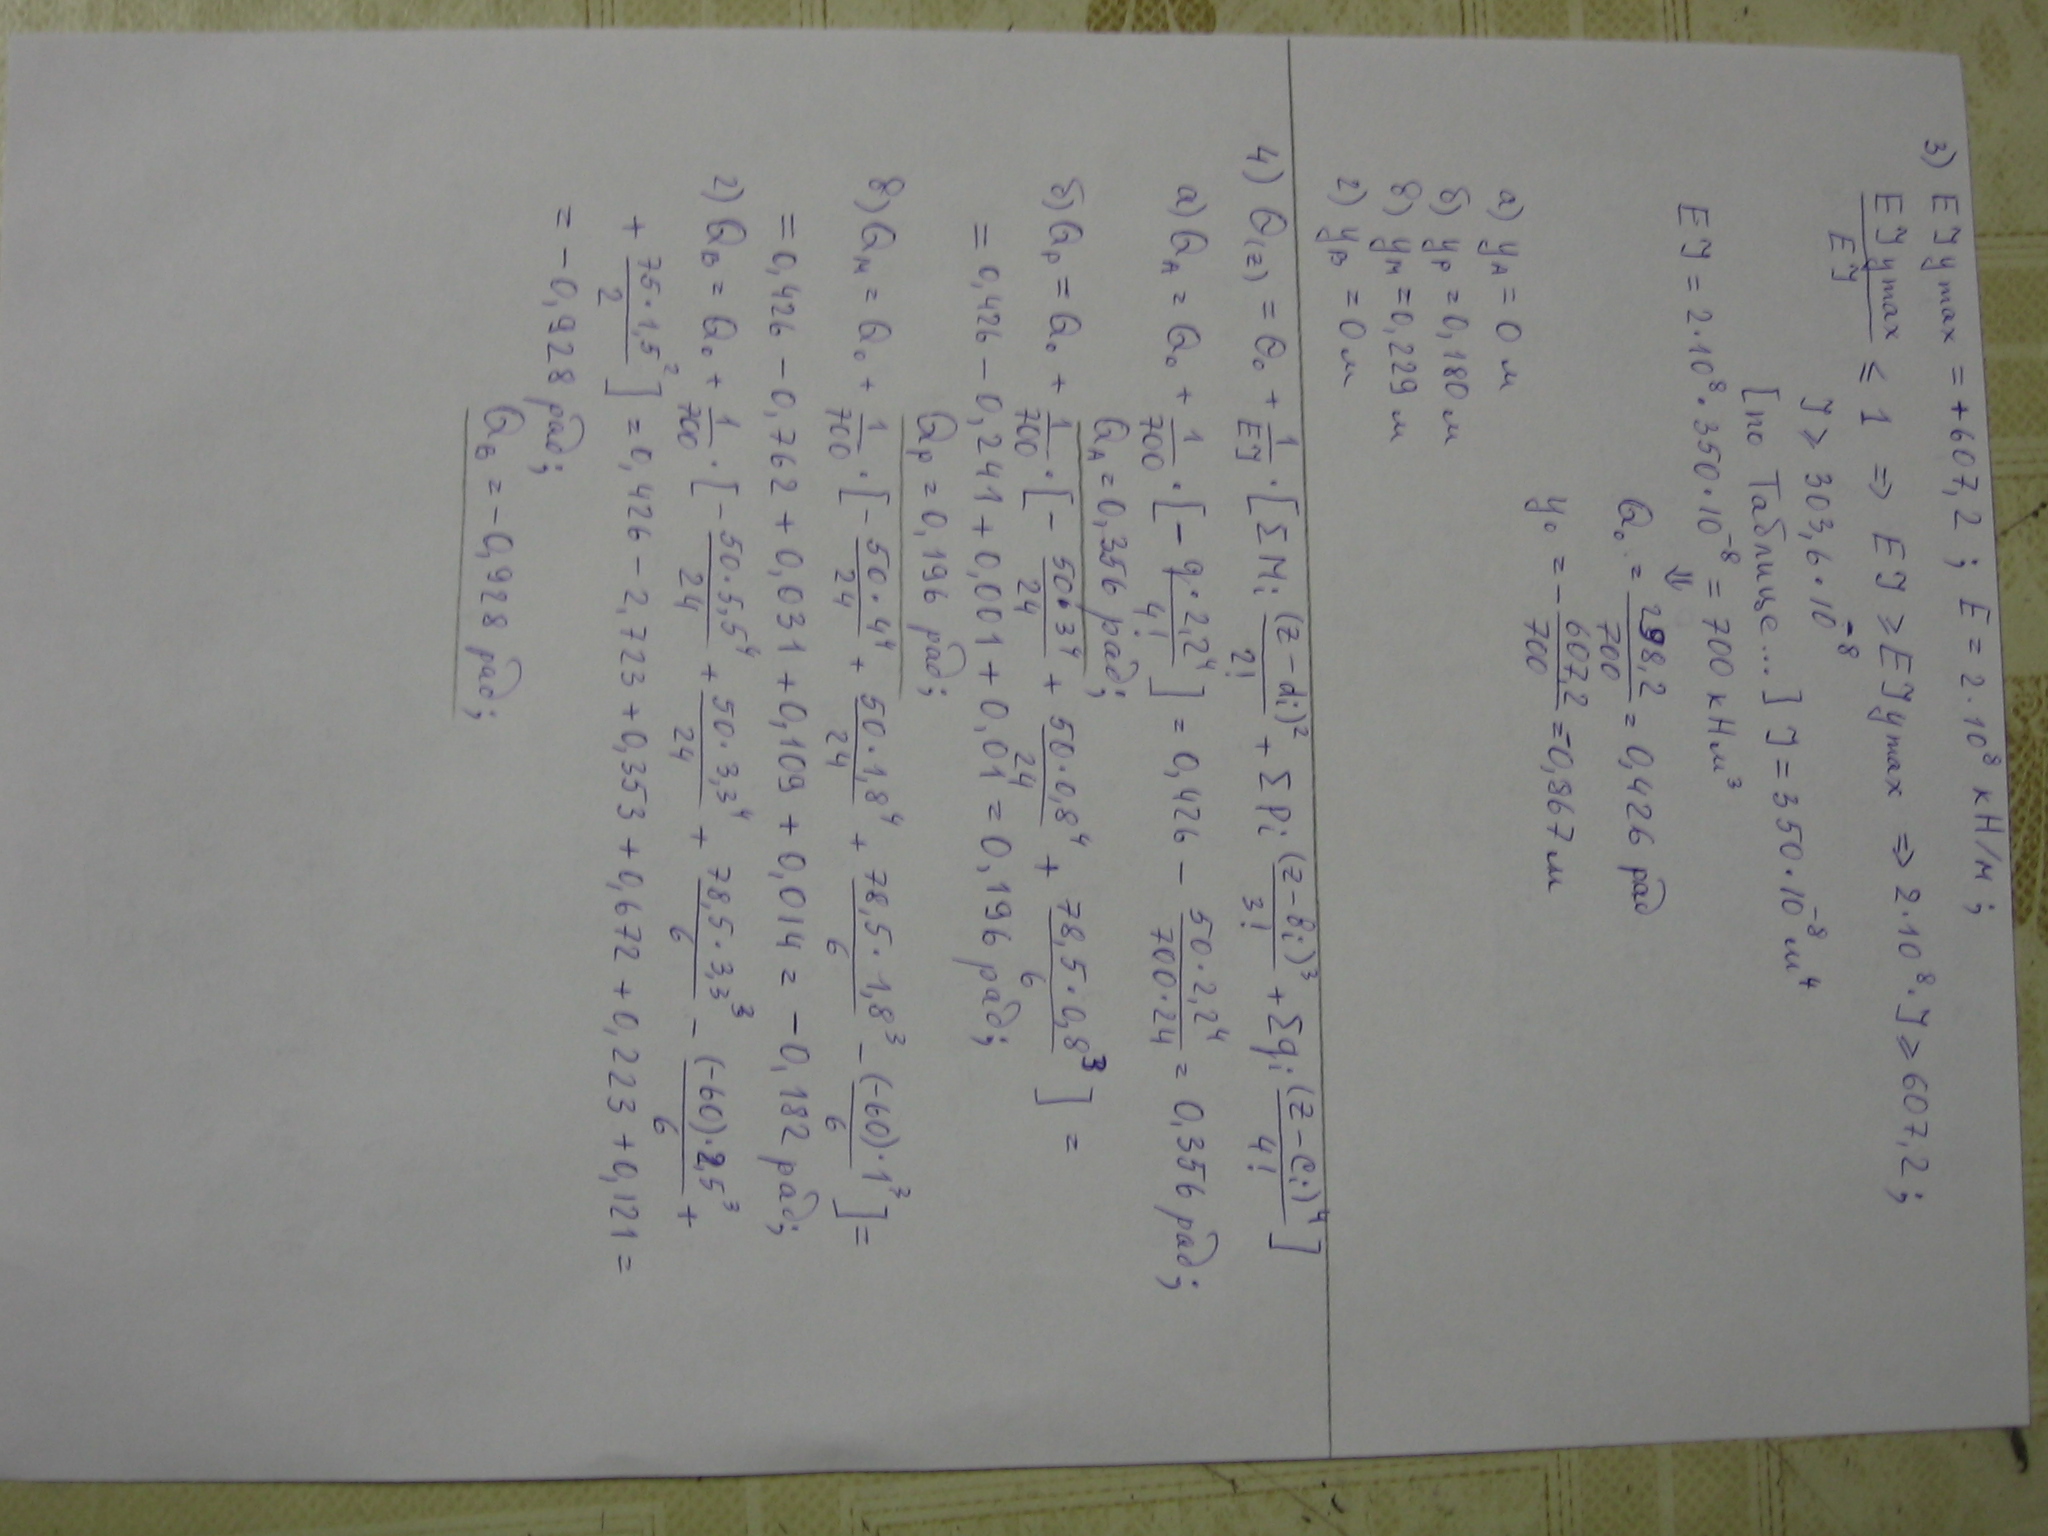 3) EJy max = +607,2 ; E = 2·10⁸ кН/м ;
EJy max / EJ ≤ 1 => EJ ≥ EJy max => 2·10⁸·J ≥ 607,2 ;
J ≥ 303,6·10⁻⁸
[по таблице...] J = 350·10⁻⁸ м⁴
EJ = 2·10⁸·350·10⁻⁸ = 700 кНм³
⇓
Q₀ = 298,2/700 = 0,426 рад
y₀ = - 607,2/700 = 0,867 м
а) yA = 0 м
б) yP = 0,180 м
в) yM = 0,229 м
г) yB = 0 м
4) Q(z) = Q₀ + 1/EJ · [ΣMi (z-di)²/2! + ΣPi (z-bi)³/3! + Σqi (z-ci)⁴/4!]
а) QA = Q₀ + 1/700 · [- q·2,2⁴/4!] = 0,426 - 50·2,2⁴/700·24 = 0,356 рад;
QA = 0,356 рад;
б) QP = Q₀ + 1/700 · [- 50·3⁴/24 + 50·0,8⁴/24 + 78,5·0,8³/6] =
= 0,426 - 0,241 + 0,001 + 0,01 = 0,196 рад;
QP = 0,196 рад;
в) QM = Q₀ + 1/700 · [- 50·4⁴/24 + 50·1,8⁴/24 + 78,5·1,8³/6 - (-60)·1³/6] =
= 0,426 - 0,762 + 0,031 + 0,109 + 0,014 = -0,182 рад;
г) QB = Q₀ + 1/700 · [- 50·5,5⁴/24 + 50·3,3⁴/24 + 78,5·3,3³/6 - (-60)·2,5³/6 +
+ 75·1,5²/2] = 0,426 - 2,723 + 0,353 + 0,672 + 0,223 + 0,121 =
= -0,928 рад;
QB = -0,928 рад;